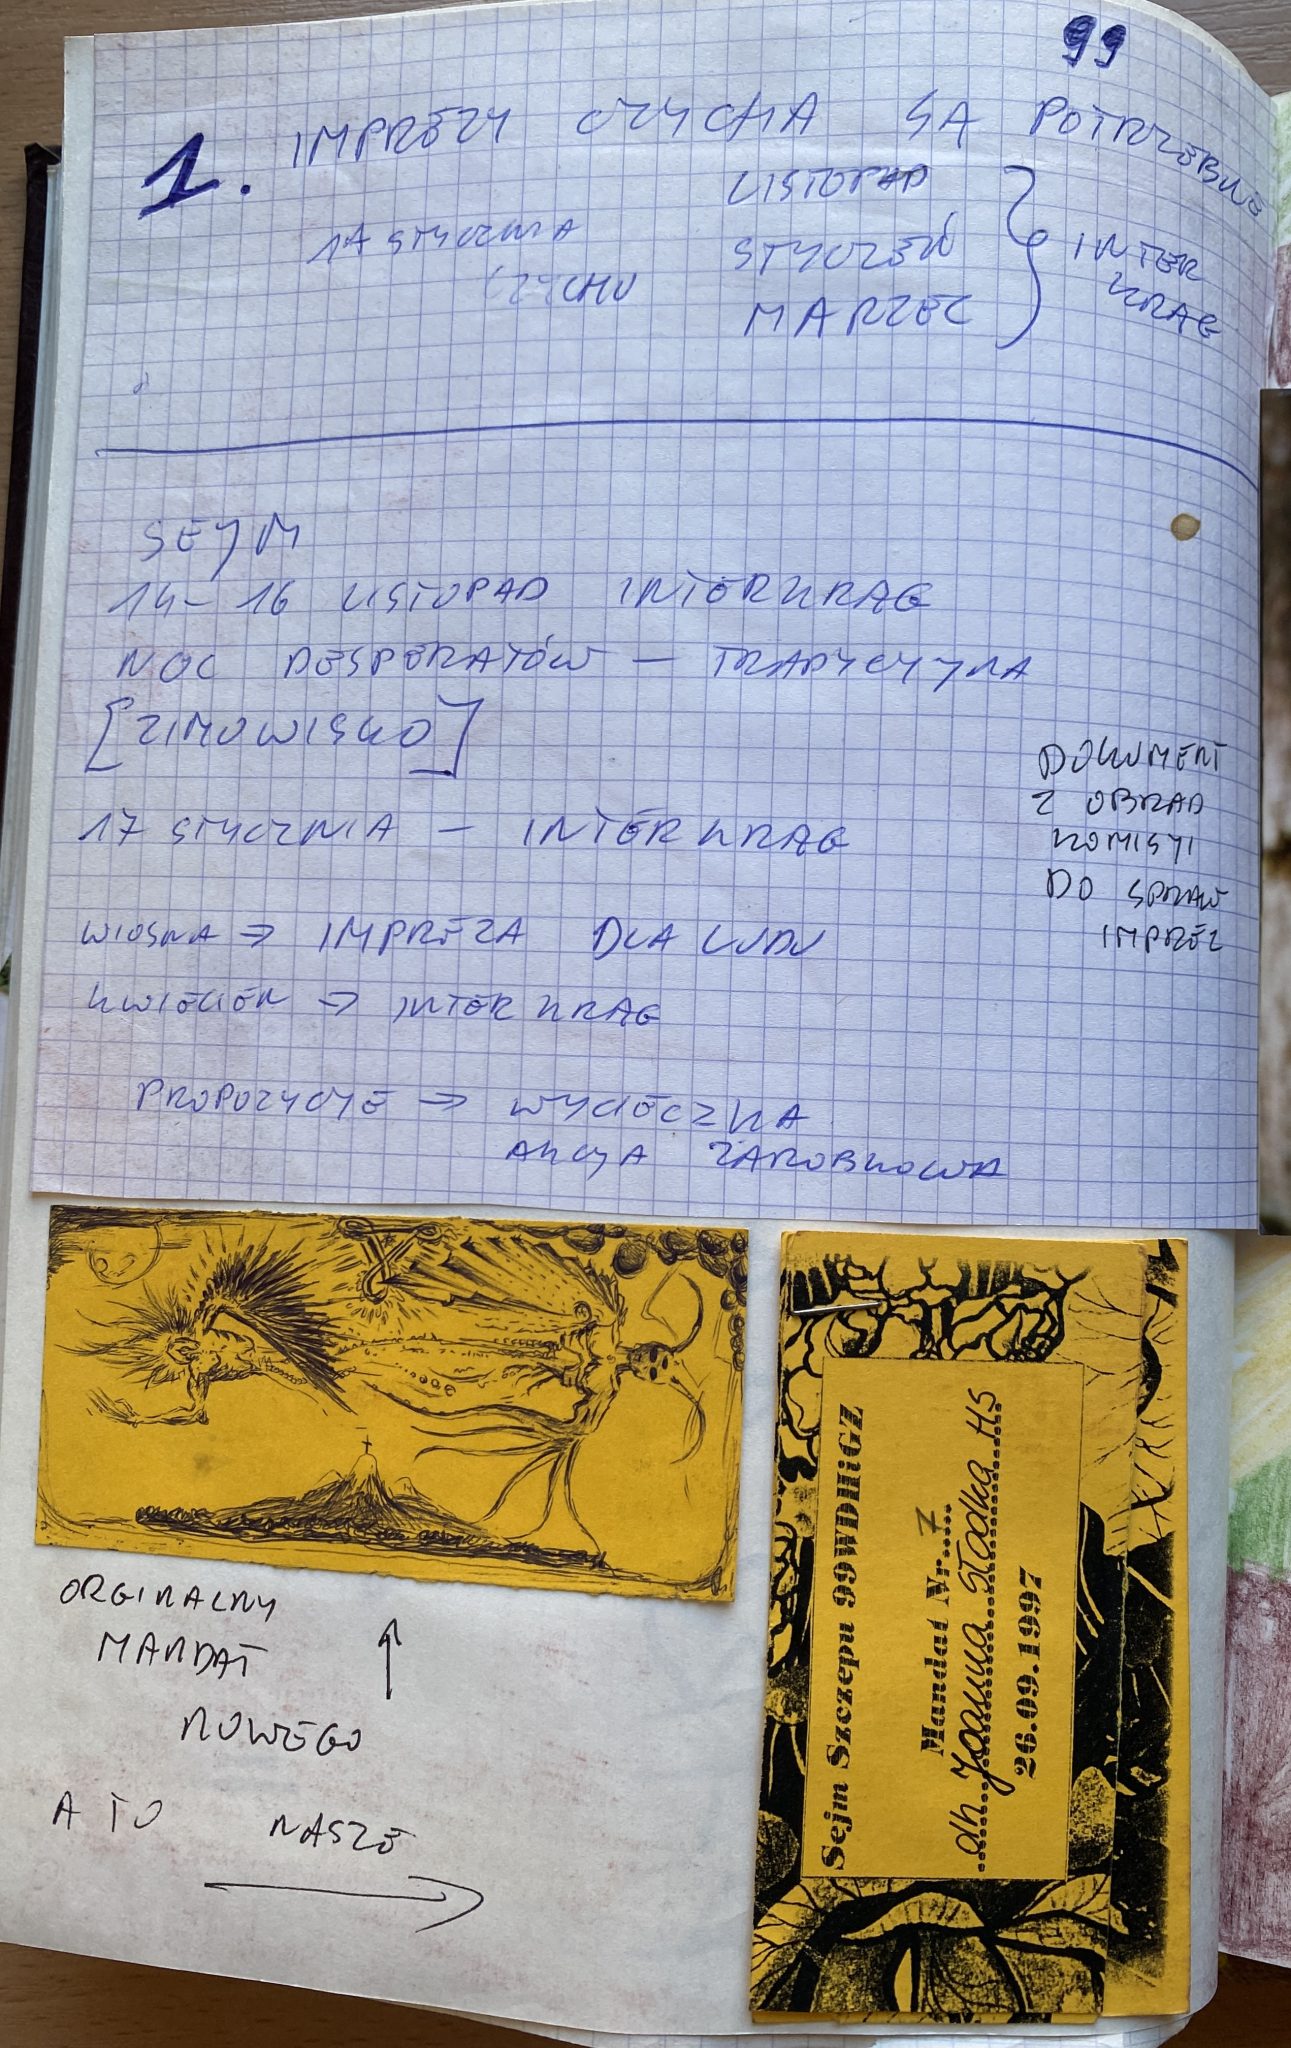 99
1. IMPREZY CZYCHA SĄ POTRZEBNE
LISTOPAD
17 STYCZNIA
STYCZEŃ
INTER
KRĄG
CZYCHU
MARZEC
SEJM
14-16 LISTOPAD INTERKRĄG
NOC DESPERATÓW — TRADYCYJNA
[ZIMOWISKO]
17 STYCZNIA — INTERKRĄG
WIOSNA => IMPREZA DLA LUDU
KWIECIEŃ -> INTERKRĄG
PROPOZYCJE -> WYCIECZKA
AKCJA ZAROBKOWA
DOKUMENT
Z OBRAD
KOMISJI
DO SPRAW
IMPREZ
ORGINALNY
MANDAT
NOWEGO
A TO NASZE
Sejm Szczepu 99WDHiGZ
Mandat Nr...7...
dh. Joanna Słodka HS
26.09.1997